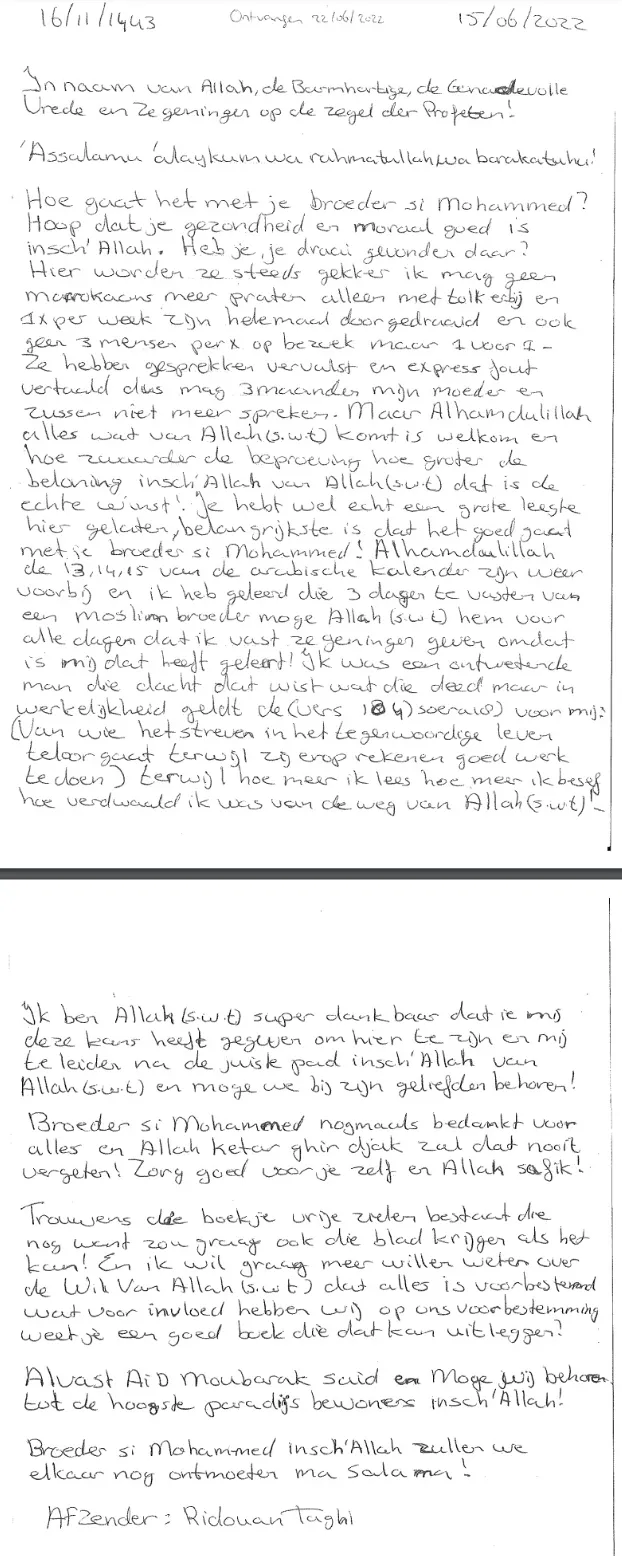 16/11/1443 Ontvangen 22/06/2022 15/06/2022
In naam van Allah, de Barmhartige, de Genadevolle
Vrede en Zegeningen op de zegel der Profeten!
'Assalamu 'alaykum wa rahmatullah wa barakatuhu!
Hoe gaat het met je broeder si Mohammed?
Hoop dat je gezondheid en moraal goed is
insch'Allah. Heb je, je draai gevonden daar?
Hier worden ze steeds gekker ik mag geen
marrokaans meer praten alleen met tolk erbij en
1x per week zijn helemaal doorgedraaid en ook
geen 3 mensen per x op bezoek maar 1 voor 1-
Ze hebben gesprekken vervalst en express fout
vertaald dus mag 3 maanden mijn moeder en
zussen niet meer spreken. Maar Alhamdulillah
alles wat van Allah (s.w.t) komt is welkom en
hoe zwaarder de beproeving hoe groter de
beloning insch'Allah van Allah (s.w.t) dat is de
echte winst! Je hebt wel echt een grote leegte
hier gelaten, belangrijkste is dat het goed gaat
met je broeder si Mohammed! Alhamdoulillah
de 13,14,15 van de arabische kalender zijn weer
voorbij en ik heb geleerd die 3 dagen te vasten van
een moslim broeder moge Allah (s.w.t) hem voor
alle dagen dat ik vast zegeningen geven omdat
is mij dat heeft geleert! Ik was een onwetende
man die dacht dat wist wat die deed maar in
werkelijkheid geldt de (vers 104) soera 18) voor mij:
(Van wie het streven in het tegenwoordige leven
teloor gaat terwijl zij erop rekenen goed werk
te doen) terwijl hoe meer ik lees hoe meer ik besef
hoe verdwaald ik was van de weg van Allah (s.w.t)!-
Ik ben Allah (s.w.t) super dankbaar dat ie mij
deze kans heeft gegeven om hier te zijn en mij
te leiden na de juiste pad insch'Allah van
Allah (s.w.t) en moge we bij zijn geliefden behoren!
Broeder si Mohammed nogmaals bedankt voor
alles en Allah ketar ghir djak zal dat nooit
vergeten! Zorg goed voor je zelf en Allah safik!
Trouwens die boekje vrije zielen bestaat die
nog want zou graag ook die blad krijgen als het
kan! En ik wil graag meer willen weten over
de Wil Van Allah (s.w.t) dat alles is voorbestemd
wat voor invloed hebben wij op ons voorbestemming
weet je een goed boek die dat kan uitleggen?
Alvast AiD Moubarak said en Moge wij behoren
tot de hoogste paradijs bewoners insch'Allah!
Broeder si Mohammed insch'Allah zullen we
elkaar nog ontmoeten ma salama!
Afzender: Ridouan Taghi